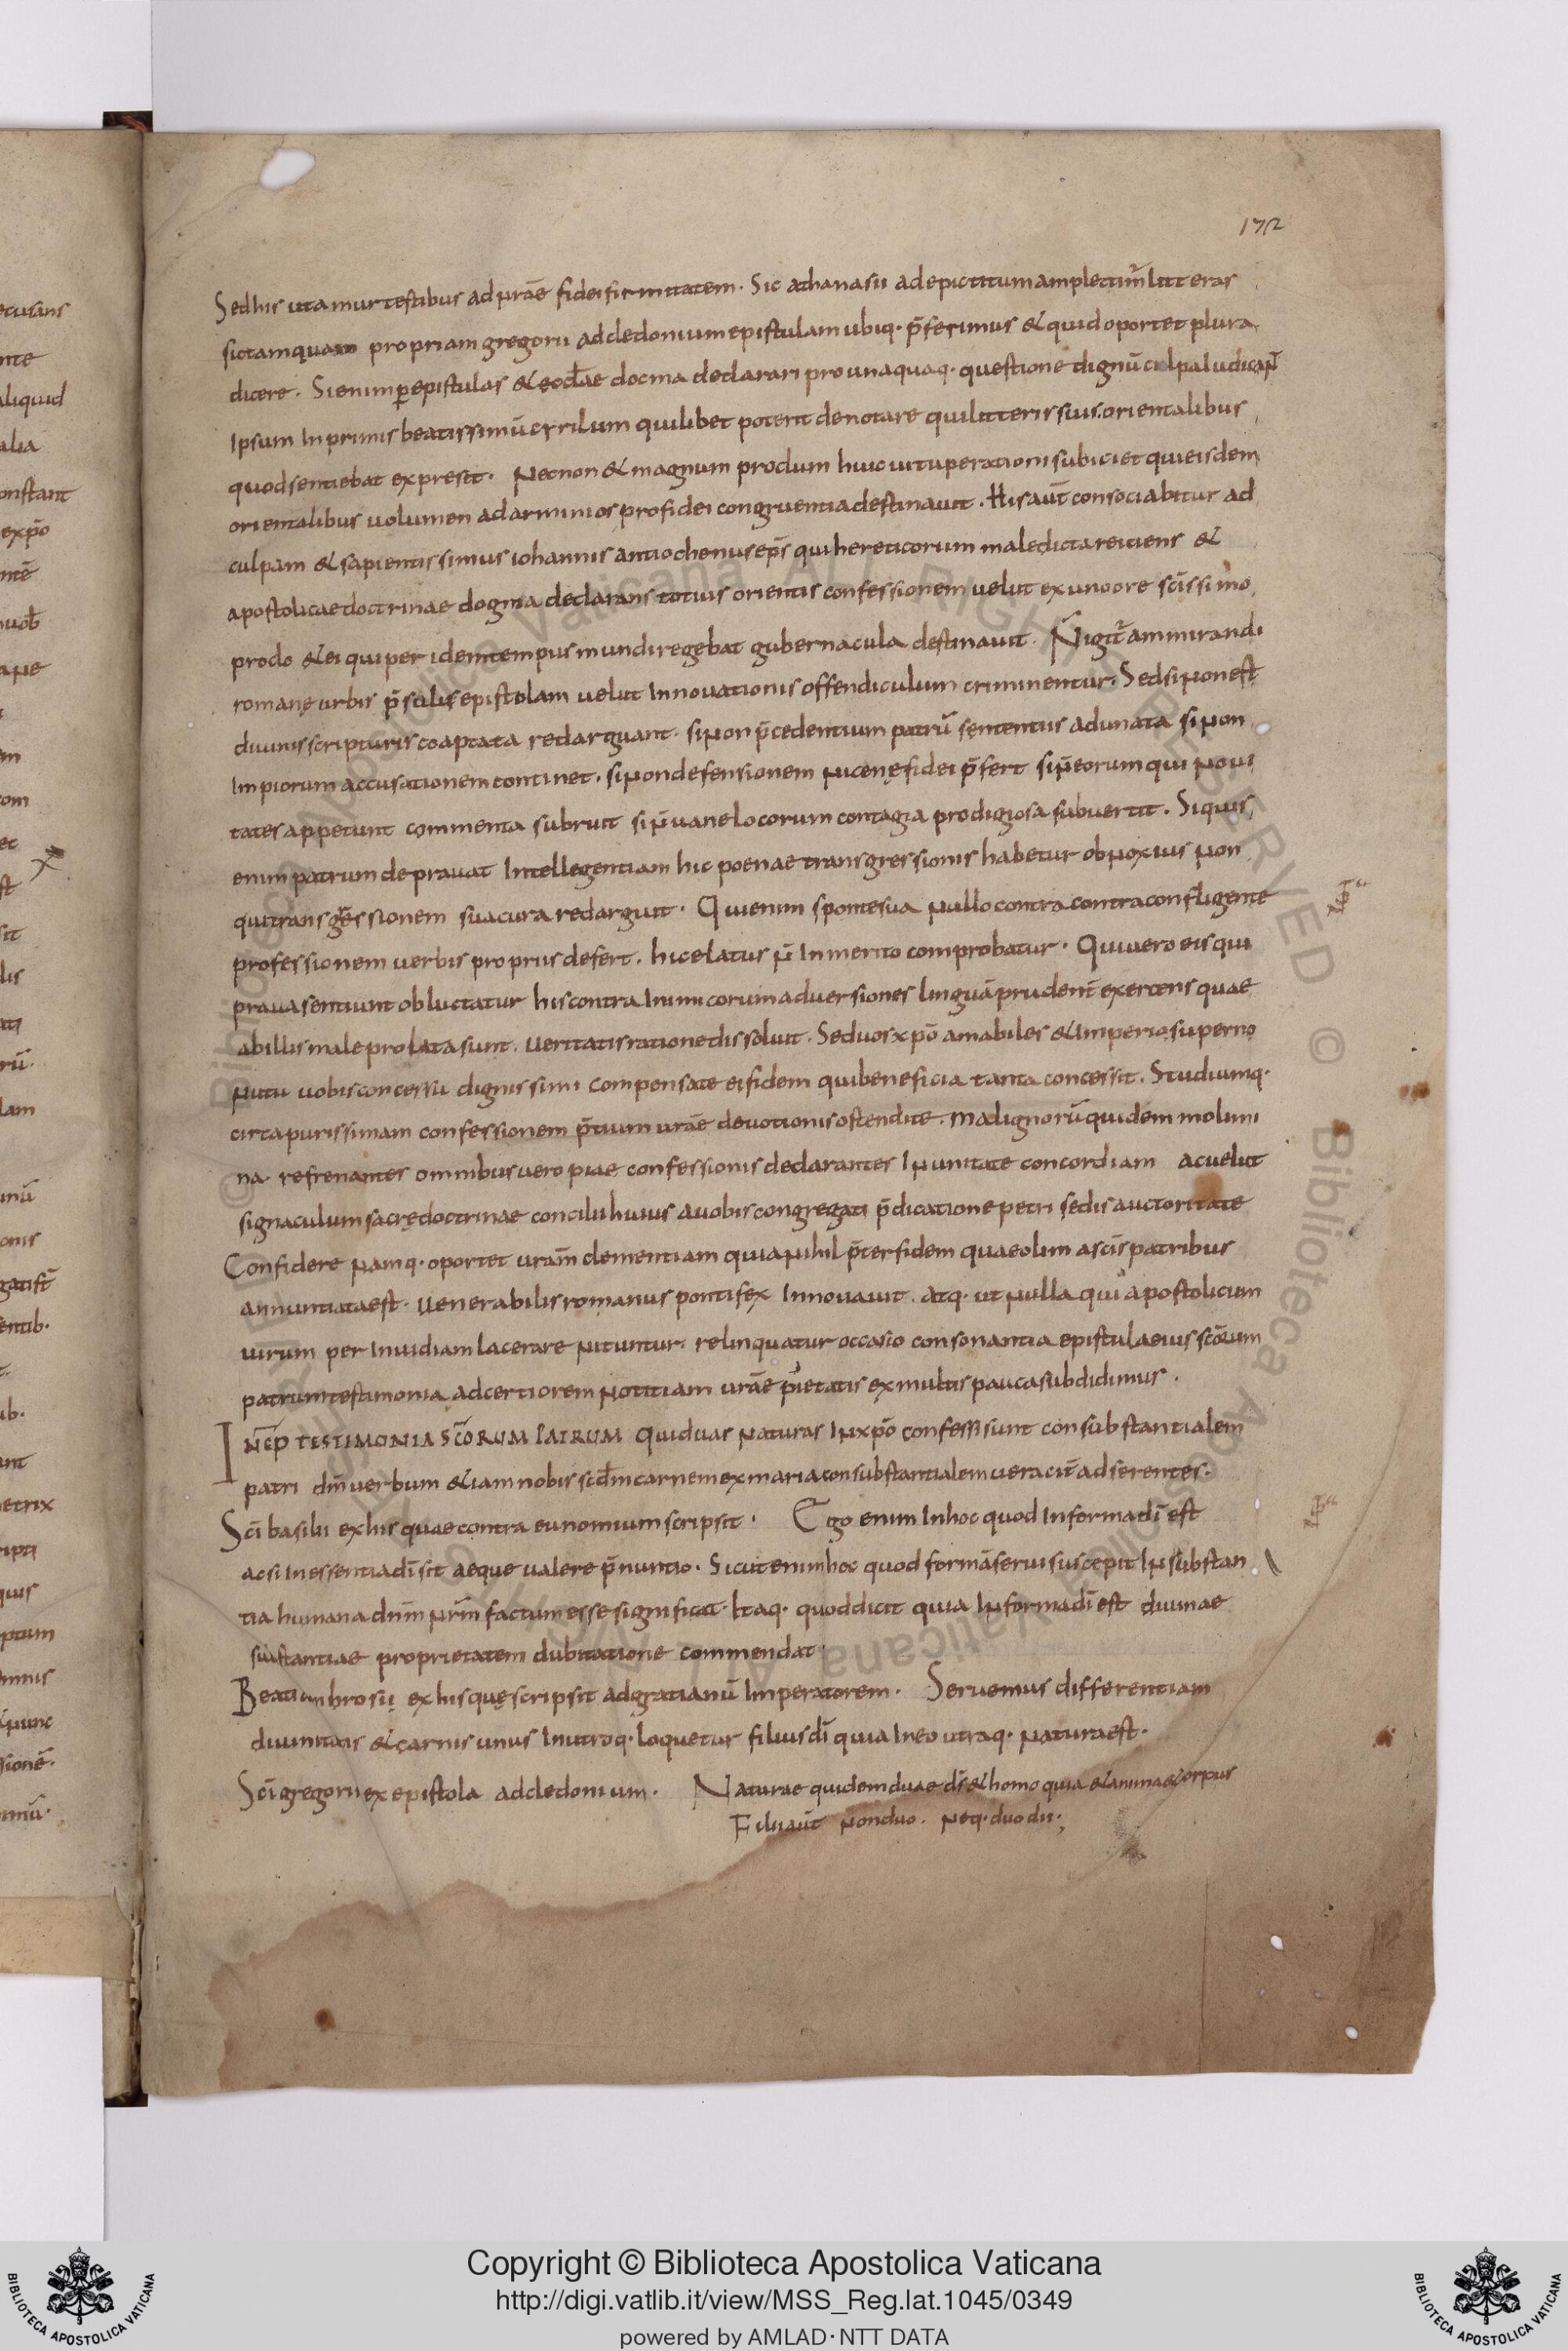 172
Sed his utamur testibus ad urāe fidei firmitatem · Sic athanasii ad epictitum amplectimr̄ litteras
sic tamquam propriam gregorii ad cledonium epistulam ubiq· p̄ferimus & quid oportet plura
dicere · Si enim p̲ epistulas & eocl̄ae docma declarari pro unaquaq· questione dignū culpa Iudicam̄
Ipsum Inprimis beatissimū cyrilum quilibet poterit denotare qui litteris suis orientalibus
quod sentiebat expresit · Necnon & magnum proclum huic uituperationi subiciet qui eisdem
orientalibus uolumen ad arminios pro fidei congruentia destinauit · His aūt consociabitur ad
culpam & sapientissimus iohannis antiochenus ep̄s qui hereticorum maledicta reitiens &
apostolicae doctrinae dogma declarans totius orientis confessionem uelut ex uno ore sc̄issimo
proclo & ei qui per idem tempus mundi regebat gubernacula destinauit · N̄ igit̄ ammirandi
romanę urbis p̄sulis epistolam uelut Innouationis offendiculum criminentur · Sed si non est
diuinis scripturis coaptata redarguant · si non p̄cedentium patrū sententiis adunata si non
Impiorum accusationem continet · si non defensionem nicenę fidei p̄fert si n̄ eorum qui noui
tates appetunt commenta subruit si n̄ uanelocorum contagia prodigiosa subuertit · Siquis
enim patrum deprauat Intellegentiam hic poenae transgressionis habetur obnoxius non
qui transgressionem sua cura redarguit · Qui enim sponte sua nullo contra contra confligente
professionem uerbis propriis defert · hic elatus n̄ Inmerito comprobatur · Qui uero eis qui
praua sentiunt obluctatur his contra Inimicorum aduersiones linguā prudenē exercens quae
ab illis male prolata sunt · ueritatis ratione dissoluit · Sed uos xp̄o amabiles & Imperio superno
nutu uobis concessu dignissimi compensate ei fidem qui beneficia tanta concessit · Studiumq·
circa purissimam confessionem p̄tium urāe deuotionis ostendite · malignorū quidem molimi
na refrenantes omnibus uero piae confessionis declarantes In unitate concordiam ac uelut
signaculum sacrę doctrinae concilii huius a uobis congregati p̄dicatione petri sedis auctoritate
Confidere namq· oportet urām clementiam quia nihil p̄ter fidem quae olim a sc̄is patribus
annuntiata est · Uenerabilis romanus pontifex Innouauit · atq· ut nulla qui apostolicum
uirum per Inuidiam lacerare nituntur · relinquatur occasio consonantia epistulae eius sc̄orum
patrum testimonia ad certiorem notitiam urāe pietatis ex multis pauca subdidimus ·
INCP̄ TESTIMONIA SC̄ORUM PATRUM Qui duas naturas In xp̄o confessi sunt consubstantialem
patri dm̄ uerbum & iam nobis scd̄m carnem ex maria consubstantialem ueracit̄ adserentes ·
Sc̄i basilii ex his quae contra eunomium scripsit · Ego enim In hoc quod In forma dī est
ac si In essentia dī sit aeque ualere p̄nuntio · Sicut enim hoc quod formā serui suscepit In substan
tia humana dnm̄ nrm̄ factum esse significat · Itaq· quod dicit quia In forma dī est diuinae
substantiae proprietatem dubitatione commendat ·
Beati ambrosii ex his quę scripsit ad gratianū Imperatorem · Seruemus differentiam
diuinitatis & carnis unus In utroq· loquetur filius dī quia In eo utraq· natura est ·
Sc̄i gregorii ex epistola ad cledonium · Naturae quidem duae ds̄ & homo quia & anima & corpus
Filii aūt non duo · neq· duo dii ·
Copyright © Biblioteca Apostolica Vaticana
http://digi.vatlib.it/view/MSS_Reg.lat.1045/0349
powered by AMLAD·NTT DATA
BIBLIOTECA APOSTOLICA VATICANA
BIBLIOTECA APOSTOLICA VATICANA